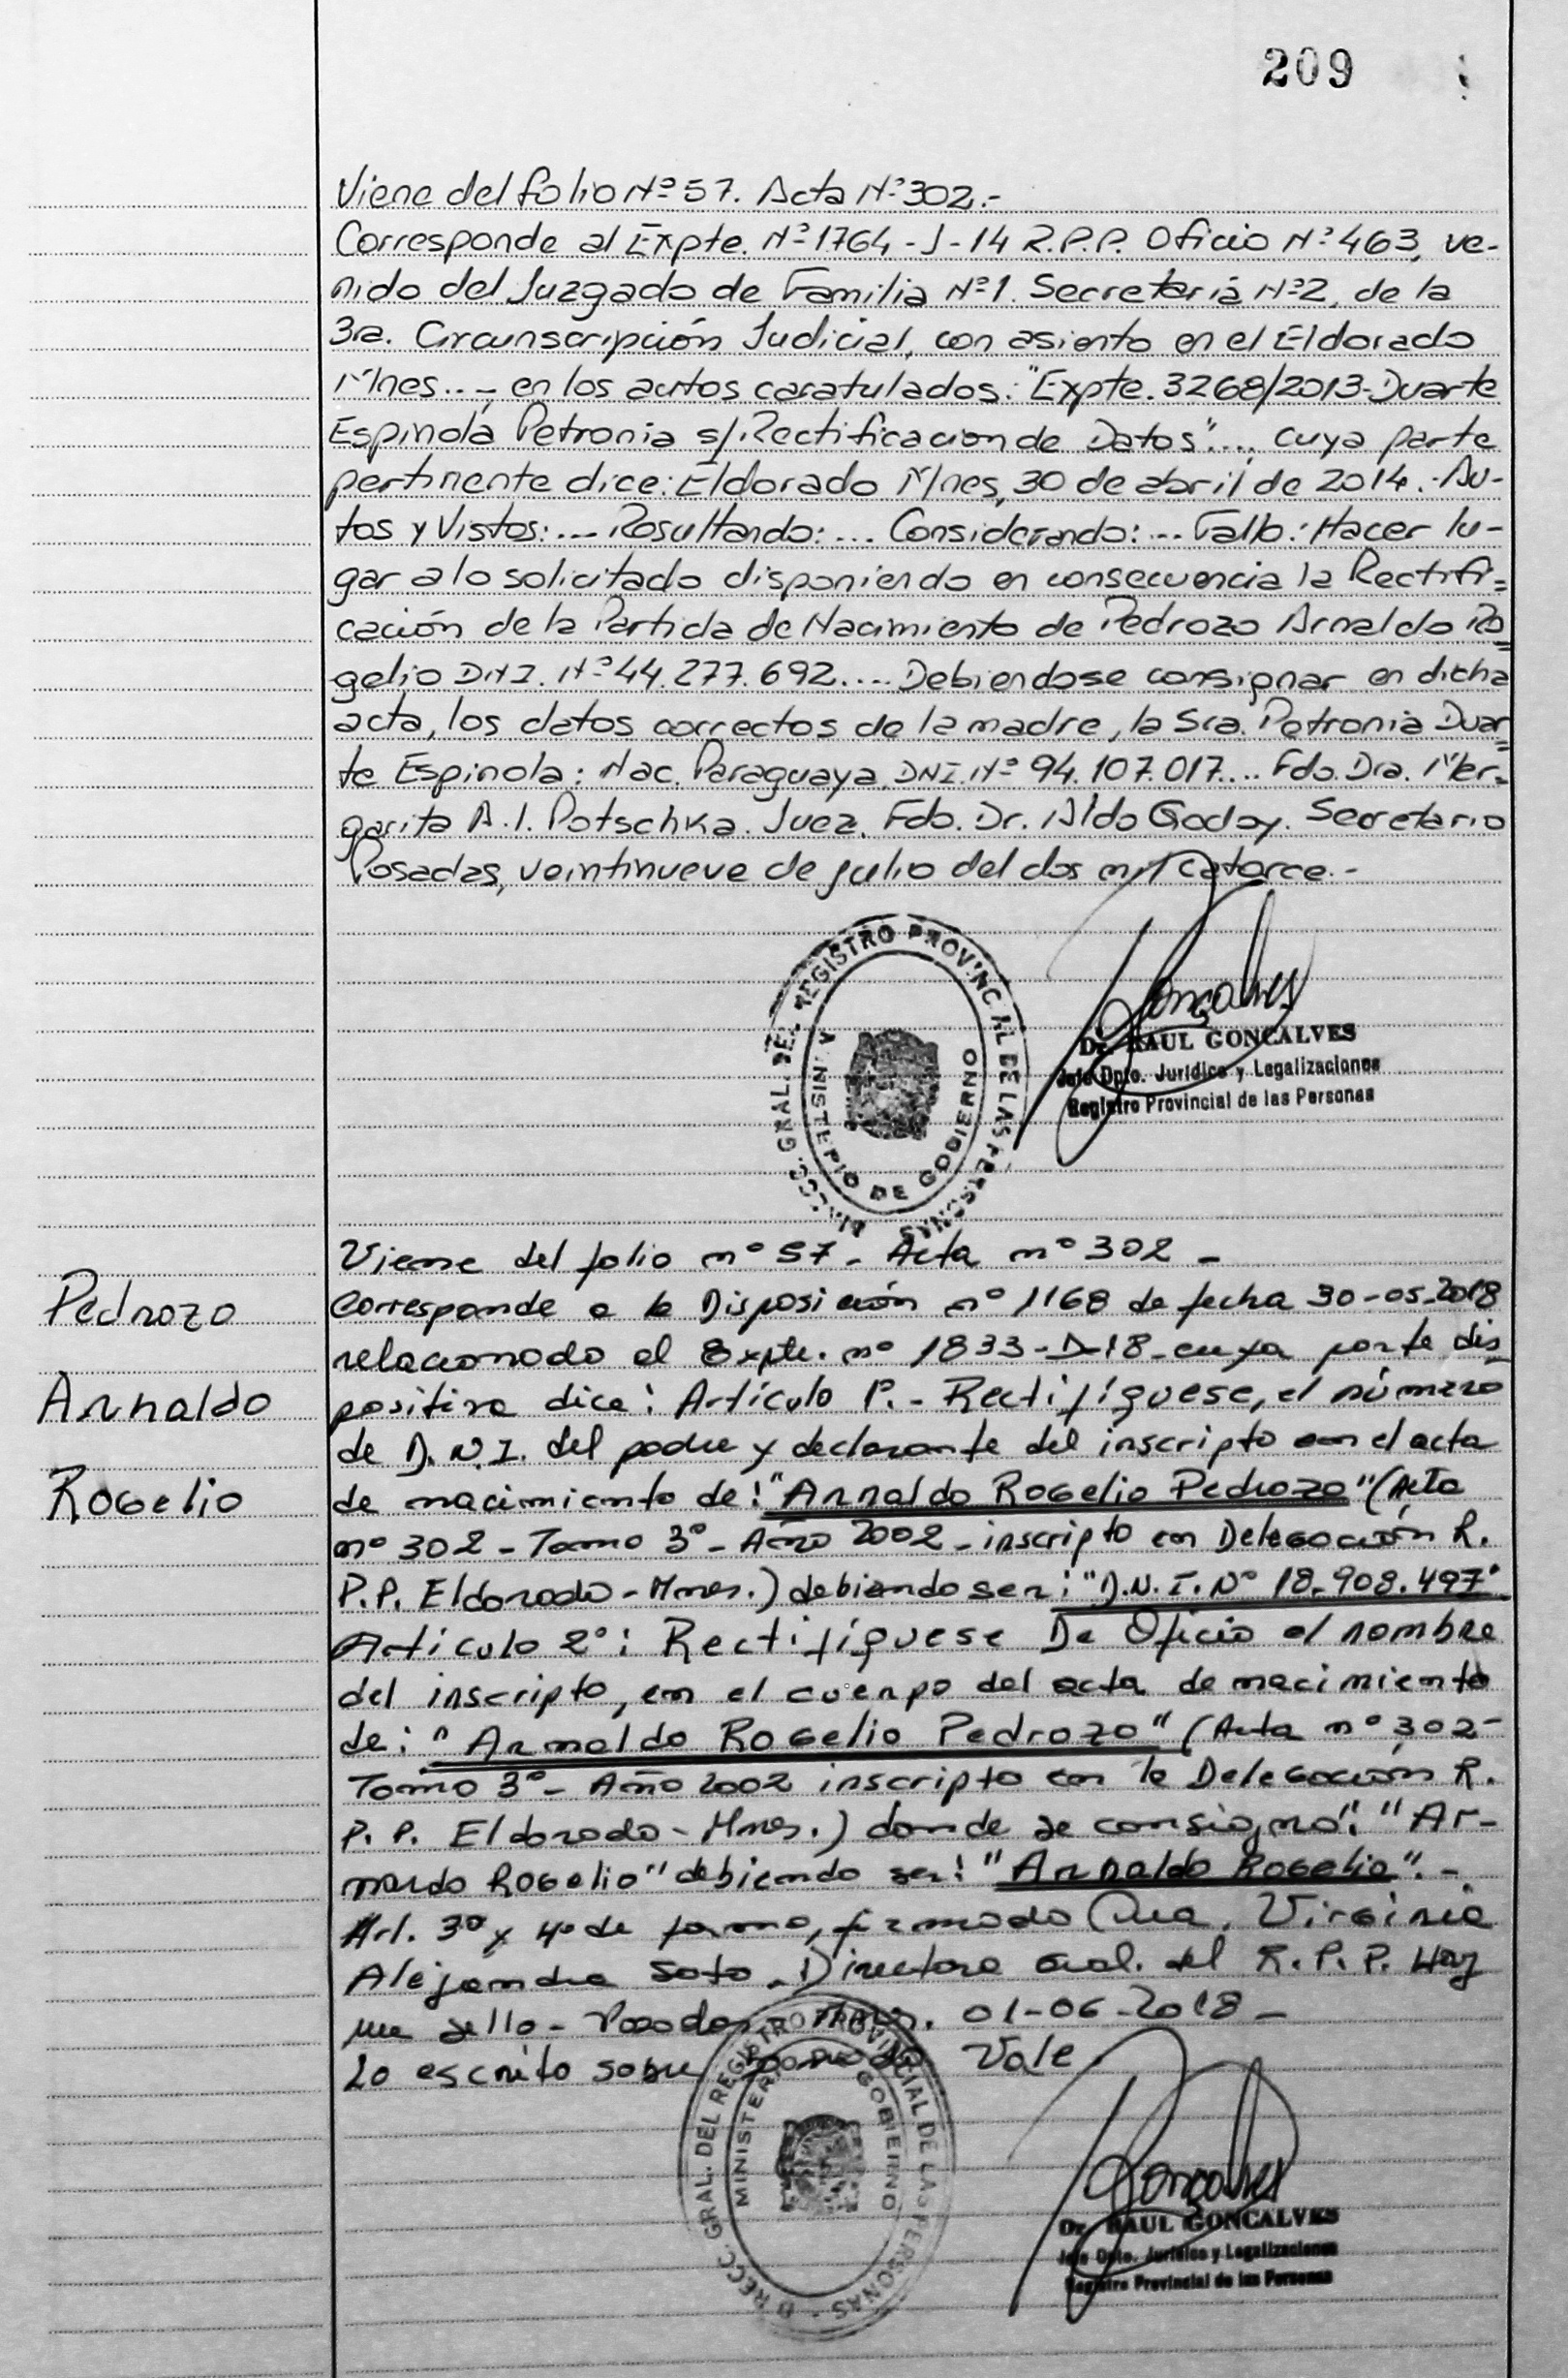 209
Viene del folio Nº 57. Acta Nº 302.-
Corresponde al Expte. Nº 1764-J-14 R.P.P. Oficio Nº 463, ve-
nido del Juzgado de Familia Nº 1. Secretaría Nº 2, de la
3ra. Circunscripción Judicial, con asiento en el Eldorado
Mnes..., en los autos caratulados: "Expte. 3268/2013-Duarte
Espinola Petronia s/Rectificacion de Datos"..., cuya parte
pertinente dice: Eldorado Mnes, 30 de abril de 2014.- Au-
tos y Vistos:... Resultando:... Considerando:... Fallo: Hacer lu-
gar a lo solicitado disponiendo en consecuencia la Rectifi=
cación de la Partida de Nacimiento de Pedrozo Arnaldo Ro
gelio D.N.I. Nº 44.277.692.... Debiendose consignar en dicha
acta, los datos correctos de la madre, la Sra. Petronia Duar
te Espinola: Nac. Paraguaya, DNI. Nº 94.107.017... Fdo. Dra. Mar=
garita A.I. Potschka. Juez. Fdo. Dr. Aldo Godoy. Secretario
Posadas, veintinueve de julio del dos mil catorce.-
DIRECC. GRAL. DEL REGISTRO PROVINCIAL DE LAS PERSONAS
MINISTERIO DE GOBIERNO
Gonçalves
Dr. RAUL GONCALVES
Jefe Dpto. Jurídico y Legalizaciones
Registro Provincial de las Personas
Viene del folio nº 57 - Acta nº 302 -
Pedrozo
Arnaldo
Rogelio
Corresponde a la Disposición nº 1168 de fecha 30-05-2018
relacionado al Expte. nº 1833-D-18- cuya parte dis
positiva dice: Artículo 1º.- Rectifíquese, el número
de D.N.I. del padre y declarante del inscripto en el acta
de nacimiento de: "Arnaldo Rogelio Pedrozo" (Acta
nº 302 - Tomo 3º - Año 2002 - inscripto en Delegación R.
P.P. Eldorado - Mnes.) debiendo ser: "D.N.I. Nº 18.908.497"
Artículo 2º: Rectifíquese De Oficio el nombre
del inscripto, en el cuerpo del acta de nacimiento
de: "Arnaldo Rogelio Pedrozo" (Acta nº 302-
Tomo 3º - Año 2002 inscripto en la Delegación R.
P.P. Eldorado - Mnes.) donde se consignó: "Ar-
mando Rogelio" debiendo ser: "Arnaldo Rogelio".-
Art. 3º y 4º de forma, firmado Dra. Virginia
Alejandra Soto - Directora Gral. del R.P.P. Hay
un sello - Posadas, Mnes. 01-06-2018 -
Lo escrito sobre Vale
DIRECC. GRAL. DEL REGISTRO PROVINCIAL DE LAS PERSONAS
MINISTERIO DE GOBIERNO
Gonçalves
Dr. RAUL GONCALVES
Jefe Dpto. Jurídico y Legalizaciones
Registro Provincial de las Personas